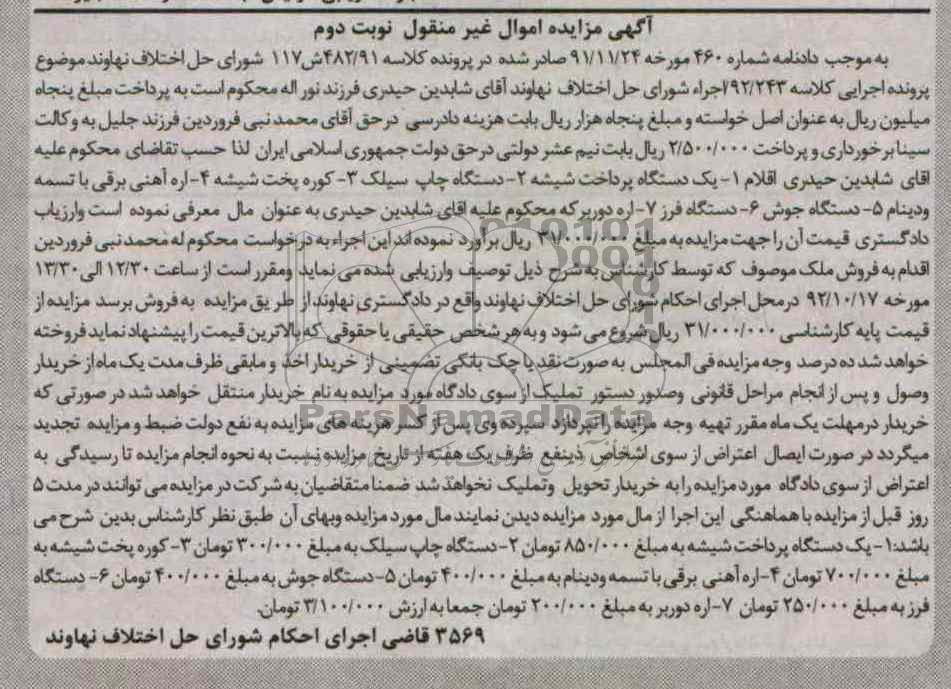 آگهی مزایده اموال غیر منقول نوبت دوم
به موجب دادنامه شماره ۴۶۰ مورخه ۹۱/۱۱/۲۴ صادر شده در پرونده کلاسه ۴۸۲/۹۱ش۱۱۷ شورای حل اختلاف نهاوند موضوع
پرونده اجرایی کلاسه ۹۲/۲۴۳/اجراء شورای حل اختلاف نهاوند آقای شاهدین حیدری فرزند نور اله محکوم است به پرداخت مبلغ پنجاه
میلیون ریال به عنوان اصل خواسته و مبلغ پنجاه هزار ریال بابت هزینه دادرسی درحق آقای محمد نبی فروردین فرزند جلیل به وکالت
سینا برخورداری و پرداخت ۲/۵۰۰/۰۰۰ ریال بابت نیم عشر دولتی درحق دولت جمهوری اسلامی ایران لذا حسب تقاضای محکوم علیه
اقای شاهدین حیدری اقلام ۱- یک دستگاه پرداخت شیشه ۲- دستگاه چاپ سیلک ۳- کوره پخت شیشه ۴- اره آهنی برقی با تسمه
ودینام ۵- دستگاه جوش ۶- دستگاه فرز ۷- اره دوربر که محکوم علیه اقای شاهدین حیدری به عنوان مال معرفی نموده است وارزیاب
دادگستری قیمت آن را جهت مزایده به مبلغ ۳۱/۰۰۰/۰۰۰ ریال برآورد نموده اند این اجراء به درخواست محکوم له محمد نبی فروردین
اقدام به فروش ملک موصوف که توسط کارشناس به شرح ذیل توصیف وارزیابی شده می نماید ومقرر است از ساعت ۱۲/۳۰ الی ۱۳/۳۰
مورخه ۹۲/۱۰/۱۷ درمحل اجرای احکام شورای حل اختلاف نهاوند واقع در دادگستری نهاوند از طریق مزایده به فروش برسد مزایده از
قیمت پایه کارشناسی ۳۱/۰۰۰/۰۰۰ ریال شروع می شود و به هر شخص حقیقی یا حقوقی که بالاترین قیمت را پیشنهاد نماید فروخته
خواهد شد ده درصد وجه مزایده فی المجلس به صورت نقد یا چک بانکی تضمینی از خریدار اخذ و مابقی ظرف مدت یک ماه از خریدار
وصول و پس از انجام مراحل قانونی وصدور دستور تملیک از سوی دادگاه مورد مزایده به نام خریدار منتقل خواهد شد در صورتی که
خریدار درمهلت یک ماه مقرر تهیه وجه مزایده را نپردازد سپرده وی پس از کسر هزینه های مزایده به نفع دولت ضبط و مزایده تجدید
میگردد در صورت ایصال اعتراض از سوی اشخاص ذینفع ظرف یک هفته از تاریخ مزایده نسبت به نحوه انجام مزایده تا رسیدگی به
اعتراض از سوی دادگاه مورد مزایده را به خریدار تحویل وتملیک نخواهد شد ضمنا متقاضیان به شرکت در مزایده می توانند در مدت ۵
روز قبل از مزایده با هماهنگی این اجرا از مال مورد مزایده دیدن نمایند مال مورد مزایده وبهای آن طبق نظر کارشناس بدین شرح می
باشد:۱- یک دستگاه پرداخت شیشه به مبلغ ۸۵۰/۰۰۰ تومان ۲- دستگاه چاپ سیلک به مبلغ ۳۰۰/۰۰۰ تومان ۳- کوره پخت شیشه به
مبلغ ۷۰۰/۰۰۰ تومان ۴- اره آهنی برقی با تسمه ودینام به مبلغ ۴۰۰/۰۰۰ تومان ۵- دستگاه جوش به مبلغ ۴۰۰/۰۰۰ تومان ۶- دستگاه
فرز به مبلغ ۲۵۰/۰۰۰ تومان ۷- اره دوربر به مبلغ ۲۰۰/۰۰۰ تومان جمعا به ارزش ۳/۱۰۰/۰۰۰ تومان.
۳۵۶۹ قاضی اجرای احکام شورای حل اختلاف نهاوند
ParsNamadData